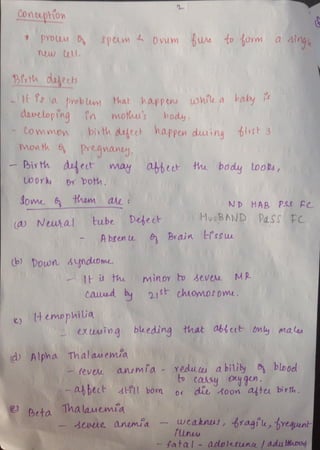 2
Conception
• process of sperm & ovum fuse to form a single
new cell.
Birth defects
- It is a problem that happens while a baby is
developing in mother's body.
- Common birth defect happen during first 3
month of pregnancy.
- Birth defect may affect the body looks,
works or both.
Some of them are :
ND HAB PSS FC
(a) Neural tube Defect
HUSBAND PaSS FC
- Absence of Brain tissue
(b) Down syndrome
- It is the minor to severe MR
caused by 21st chromosome.
c) Hemophilia
- excessing bleeding that affect only males
d) Alpha Thalassemia
- severe anemia - reduces ability of blood
to carry oxygen.
- affect still born or die soon after birth.
e) Beta Thalassemia
- severe anemia - weakness, fragile, frequent
illness
- fatal - adolescence / adulthood